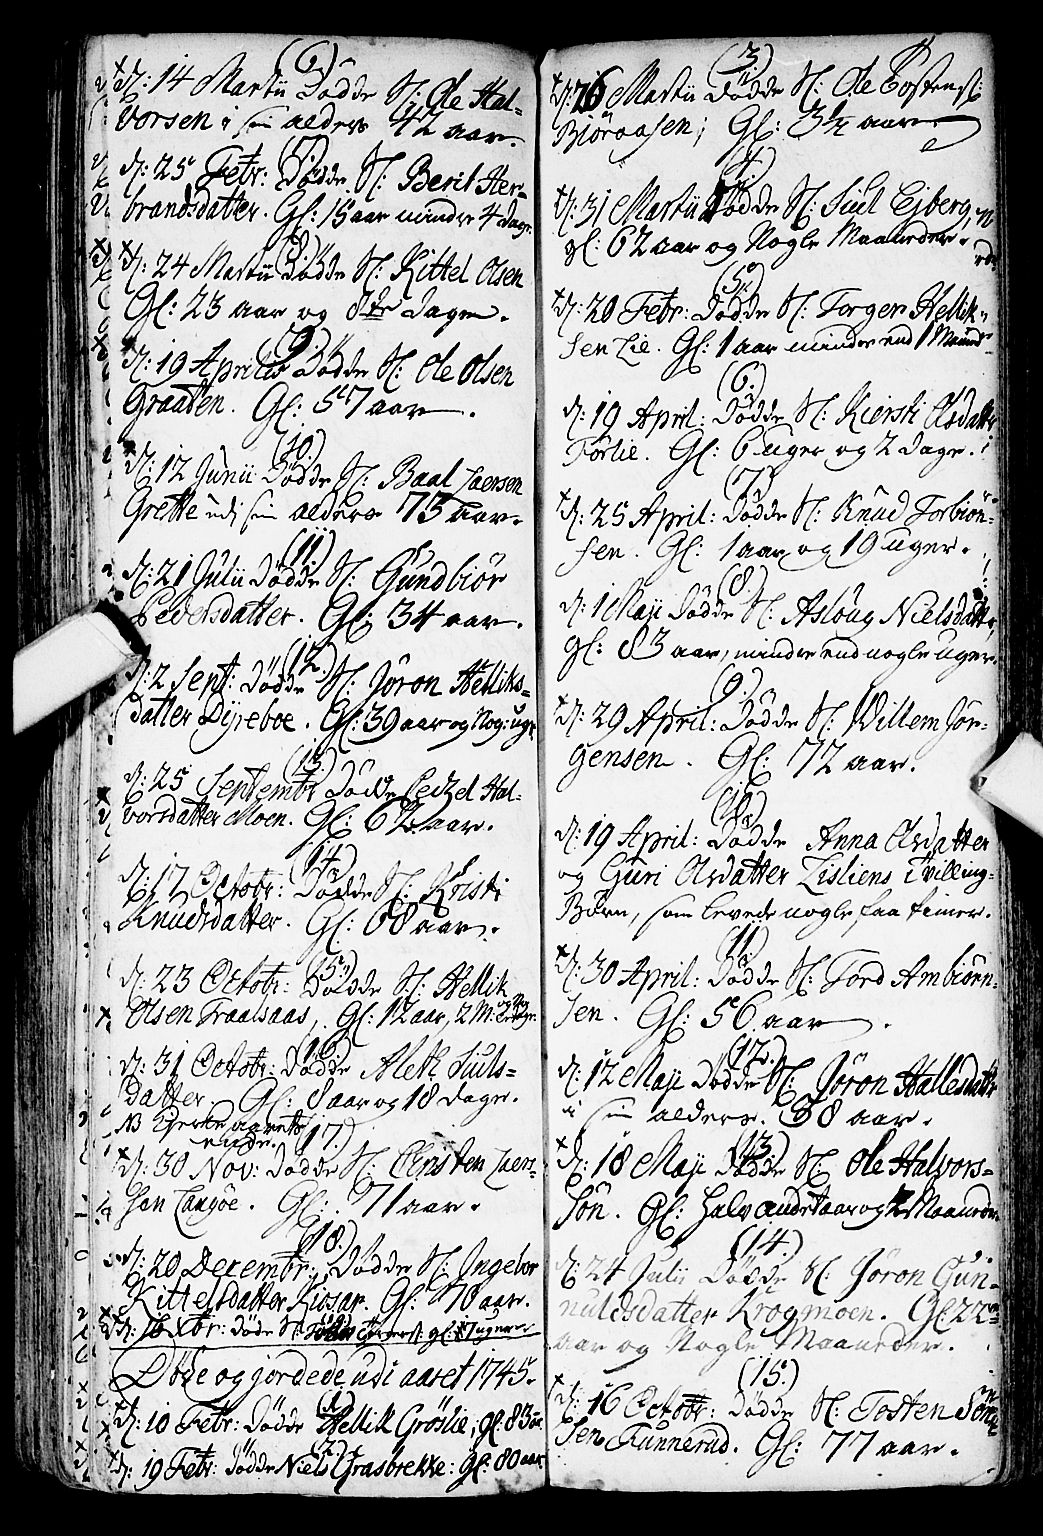 (6.)
D: 14 Martii Dödde S: Ole Hal-
vorsen i sin alders 42 aar.
(7.)
D: 25 Febr: Dödde S: Berit Her-
brandsdatter. Gl: 15 aar mindre 4 dage.
(8.)
D: 24 Martii Dödde S: Kittel Olsen
Gl: 23 aar og dage.
(9.)
D: 19 Aprilis Dödde S: Ole Olsen
Graaten. Gl: 57 aar.
(10.)
D: 12 Junii Dödde S: Baal Laersen
Grette udi sin alders 73 aar.
(11.)
D: 21 Julii Dödde S: Gundbiör
Pedersdatter. Gl: 34 aar.
(12.)
D: 2 Sept: Dödde S: Jöron Helliks-
datter Dijseboe. Gl: 39 aar og Nog: uge
(13.)
D: 25 Septembr Dödde Hal-
vorsdatter Moen. Gl: 62 aar.
(14.)
D: 17 Octobr: Dödde S: Kristi
Knudsdatter. Gl: 68 aar.
(15.)
D: 23 Octobr: Dödde S: Hellik
Olsen Traalsaas, Gl: 12 aar, 2 M:
(16.)
D: 31 Octobr: Dödde Aleth Siuls-
datter. Gl: 8 aar og 18 dage.
NB aarets
ende. (17.)
D: 30 Nov: Dödde S: Christen Laer-
sen Langöe. Gl: 71 aar.
(18.)
D: 20 Decembr: Dödde S: Ingebor
Kittelsdatter Kiosar. Gl: 70 aar.
D: 16 Xbr: Döde S: gl: 7 uger
Döde og jordede udi aaret 1745.
(1.)
D: 10 Febr: Dödde Hellik Gröslie, gl: 83 aar
(2.)
D: 19 Febr: dödde Niels Grasbrekke: gl: 80 aar
(3.)
D: 16 Martii Dödde S: Ole Tostens:
Biöraasen; Gl: 3½ aar
(4.)
D: 31 Martii Dödde S: Siul Ejberg,
gl: 62 aar og Nogle Maaneder.
(5.)
D: 20 Febr: Dödde S: Torger Hellik-
sen Lie. Gl: 1 aar mindre end 1 Maaned
(6.)
D: 19 April: Dödde S: Kiersti Olsdatter
Förlie. Gl: 6 uger og 2 dage.
(7.)
D: 25 April: Dödde S: Knud Torbiön-
sen. Gl: 1 aar og 19 uger.
(8.)
D: 1 Maji Dödde S: Aslöug Nielsdatter,
gl: 83 aar, mindre end nogle uger.
(9.)
D: 29 April: Dödde S: Willem Jör-
gensen. Gl: 72 aar.
(10.)
D: 19 April: Dödde Anna Olsdatter
og Guri Olsdatter Lisliens Tvilling-
Börn, som levede nogle faa timer.
(11.)
D: 30 April: Dödde S: Tord Ambiörn-
sen. Gl: 56 aar.
(12.)
D: 12 Maji Dödde S: Jöron Hallesdatter
i sin alders 38 aar.
(13.)
D: 18 Maji Dödde S: Ole Halvors-
sön. Gl: halv andet aar og 2 Maaneder
(14.)
D: 24 Julii Dödde S: Jöron Gun-
nuldsdatter Krogmoen. Gl: 22
aar og Nogle Maaneder.
(15.)
D: 16 Octobr: Dödde S: Tosten
sen Funnerud. Gl: 77 aar.